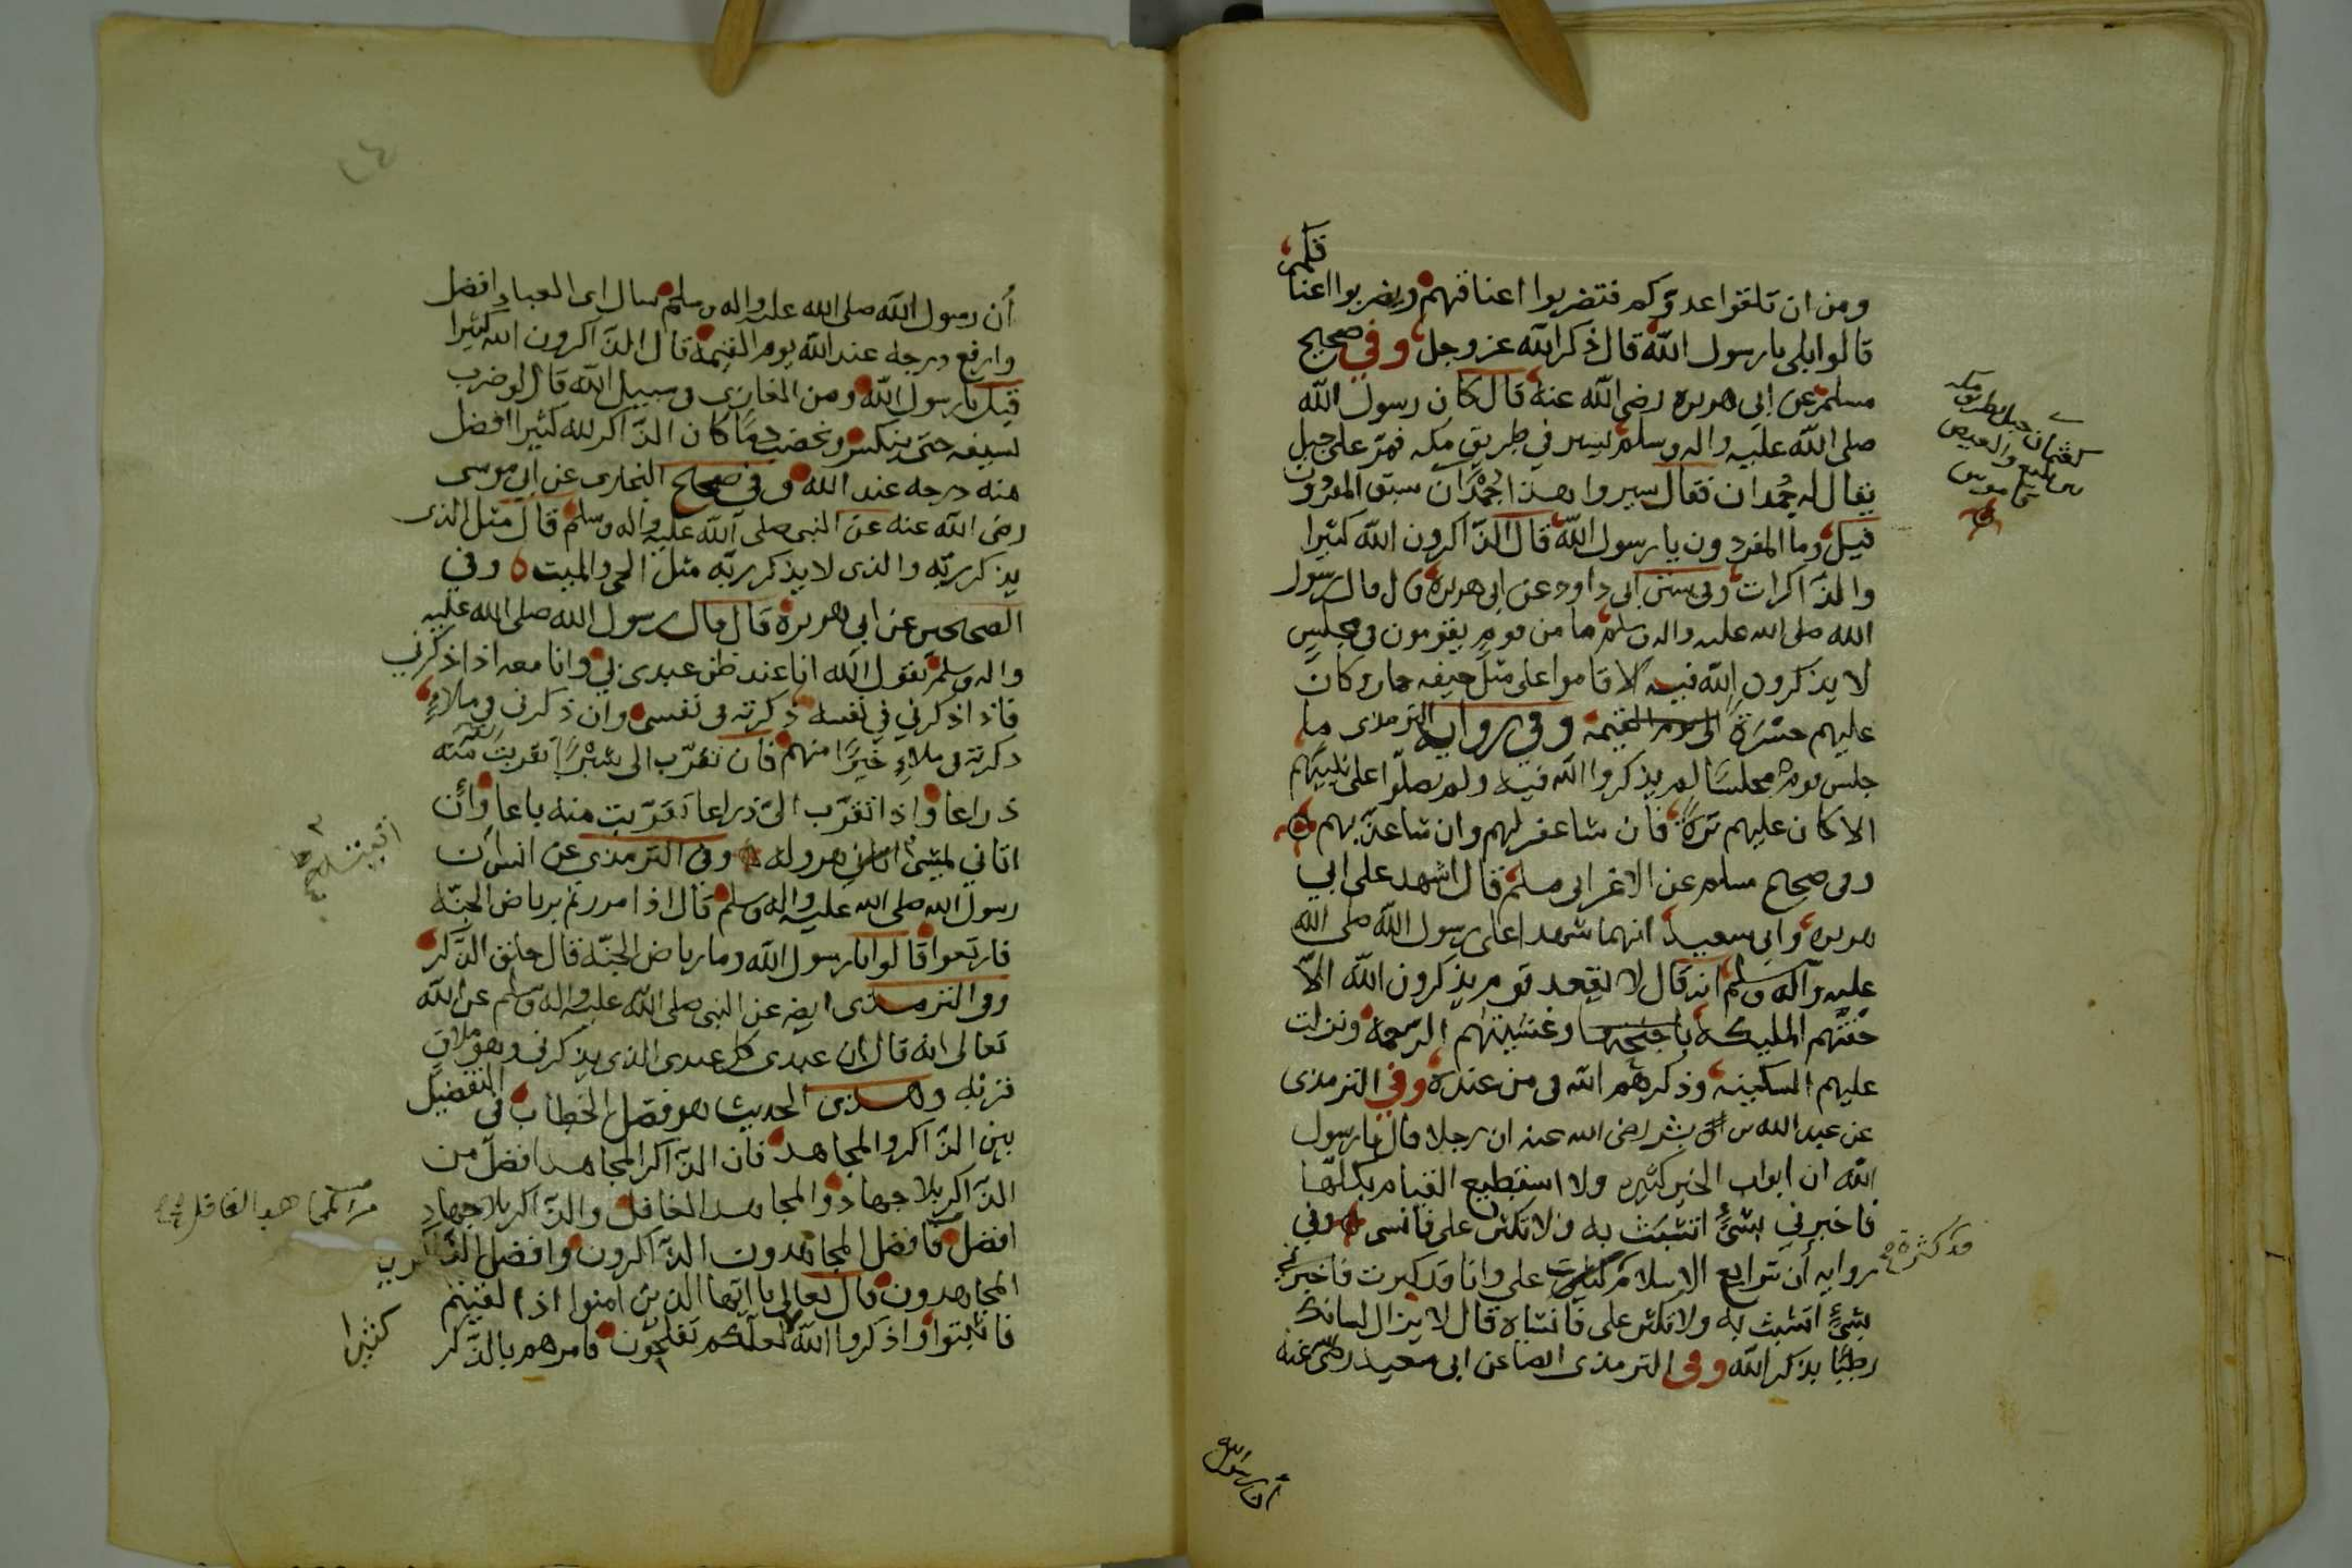 ومن ان تلقوا عدوكم فتضربوا اعناقهم ويضربوا اعنا
قكم
قالوا بلى يا رسول الله قال ذكر الله عز وجل وفي صحيح
مسلم عن ابى هريره رضى الله عنه قال كان رسول الله
صلى الله عليه واله وسلم يسير في طريق مكه فمر على جبل
يقال له جُمدان فقال سيروا هذا جُمْدَان سبق المفردون
قيل وما المفردون يا رسول الله قال الذاكرون الله كثيرا
والذاكرات وفى سنن ابى داود عن ابى هريره قال قال رسول
الله صلى الله عليه واله وسلم ما من قوم يقومون فى مجلس
لا يذكرون الله فيه الا قاموا على مثل جيفه حمار وكان
عليهم حسرة الى يوم القيمه وفي رواية الترمذى ما
جلس قوم مجلسًا لم يذكروا الله فيه ولم يصلوا على نبيهم
الا كان عليهم ترة فان شا غفر لهم وان شا عذبهم
وفى صحيح مسلم عن الاغر ابى مسلم قال اشهد على ابي
هريره وابى سعيد انهما شهدا على رسول الله صلى الله
عليه وآله وسلم انه قال لا يقعد قوم يذكرون الله الا
حفتهم المليكه باجنحتها وغشيتهم الرحمه ونزلت
عليهم السكينه وذكرهم الله فى من عنده وفي الترمذى
عن عبد الله بن بشر رضى الله عنه ان رجلا قال يا رسول
الله ان ابواب الخير كثيره ولا استطيع القيام بكلها
فاخبرني بشئ اتشبث به ولا تكثر على فانسى وفي
روايه أن شرايع الاسلام كثرت على وانا قد كبرت فاخبرنى
بشئ اتشبث به ولا تكثر على فانساه قال لا يزال لسانك
رطبًا بذكر الله وفى الترمذى ايضا عن ابى سعيد رضى عنه
أن رسول الله
أن رسول الله صلى الله عليه واله وسلم سال اى العباد افضل
وارفع درجه عند الله يوم القيمة قال الذاكرون الله كثيرا
قيل يا رسول الله ومن الغازى فى سبيل الله قال لو ضرب
بسيفه حتى ينكسر ويختضب دمًا كان الذاكر لله كثيرا افضل
منه درجه عند الله وفى صحيح البخارى عن ابى موسى
رضى الله عنه عن النبى صلى الله عليه واله وسلم قال مثل الذى
يذكر ربه والذى لا يذكر ربه مثل الحى والميت وفي
الصحيحين عن ابي هريرة قال قال رسول الله صلى الله عليه
واله وسلم يقول الله انا عند ظن عبدى بى وانا معه اذا ذكرنى
فاذا ذكرنى في نفسه ذكرته فى نفسى وان ذكرنى فى ملاءٍ
ذكرته فى ملاءٍ خيرًا منهم فان تقرب الى شبْرًا تقربت منه
ذراعا واذا تقرب الى ذراعا تقربت منه باعا وأن
اتاني يمشى اتيته هروله وفى الترمذي عن انس ان
رسول الله صلى الله عليه واله وسلم قال اذا مررتم برياض الجنه
فارتعوا قالوا يا رسول الله وما رياض الجنة قال حلق الذكر
وفى الترمذى ايضه عن النبى صلى الله عليه واله وسلم عن الله
تعالى انه قال ان عبدى كل عبدى الذى يذكرنى وهو ملاق
قرنه وهذى الحديث هو فصل الخطاب فى التفضيل
بين الذاكر والمجاهد فان الذاكر المجاهد افضل من
الذاكر بلا جهاد والمجاهد الغافل والذاكر بلا جهاد
افضل فافضل المجاهدون الذاكرون وافضل الذاكرين
المجاهدون قال تعالى يا ايها الذين امنوا اذا لقيتم
فاثبتوا واذكروا الله لعلكم تفلحون فامرهم بالذكر
كثيرا